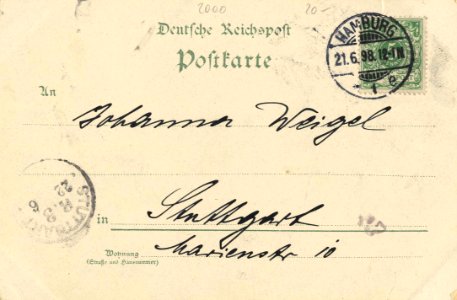 2000 20.-
Deutsche Reichspost
Postkarte
HAMBURG
21.6.98.12-1N
* 1 e
An
Johanna Weigel
STUTTGART
22
6
in Stuttgart
Wohnung
(Straße und Hausnummer)
Marienstr 10